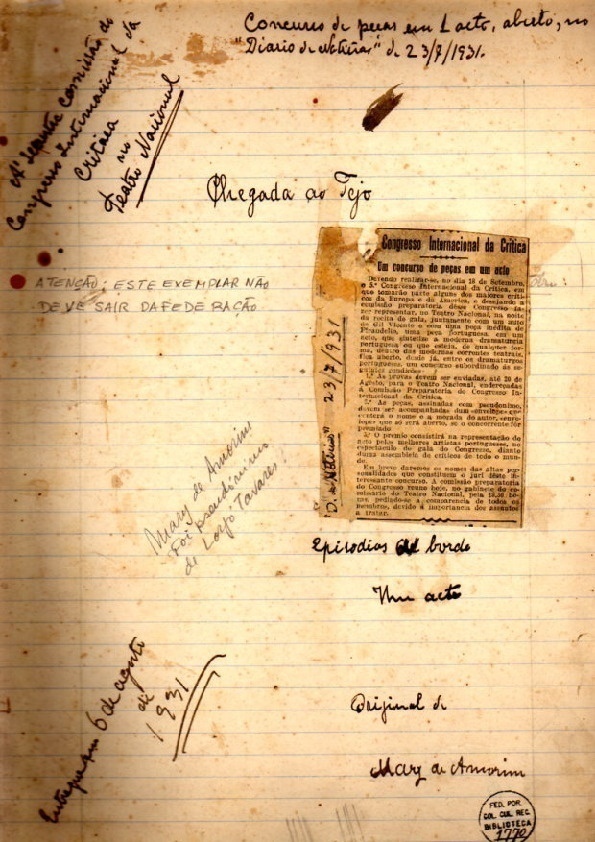 Concurso de peças em 1 acto, aberto, no
"Diario de Noticias" de 23/7/1931.
A' segunda comissão do
Congresso Internacional da
Critica
no
Teatro Nacional
Chegada ao Tejo
Congresso Internacional da Crítica
Um concurso de peças em um acto
Devendo realizar-se, no dia 18 de Setembro,
o 5.º Congresso Internacional da Crítica, em
que tomarão parte alguns dos maiores críti-
cos da Europa e da America, e desejando a
comissão preparatoria dêsse Congresso fa-
zer representar, no Teatro Nacional, na noite
da recita de gala, juntamente com um auto
de Gil Vicente e com uma peça inédita de
Pirandello, uma peça portuguesa, em um
acto, que sintetize a moderna dramaturgia
portuguesa ou que esteja, de qualquer for-
ma, dentro das modernas correntes teatrais,
fica aberto, desde já, entre os dramaturgos
portugueses, um concurso subordinado ás se-
guintes condições:
1.ª As provas devem ser enviadas, até 20 de
Agosto, para o Teatro Nacional, endereçadas
á Comissão Preparatoria do Congresso In-
ternacional da Crítica.
2.ª As peças, assinadas com pseudonimo,
devem ser acompanhadas dum envelope que
conterá o nome e a morada do autor, enve-
lope que só será aberto, se o concorrente fôr
premiado
3.ª O premio consistirá na representação do
acto pelos melhores artistas portugueses, no
espectaculo de gala do Congresso, diante
duma assembleia de críticos de todo o mun-
do.
Em breve daremos os nomes das altas per-
sonalidades que constituem o juri dêste in-
teressante concurso. A comissão preparatoria
do Congresso reune hoje, no gabinete do co-
missario do Teatro Nacional, pela 18,30 ho-
ras, pedindo-se a comparencia de todos os
membros, devido á importancia dos assuntos
a tratar.
D. de Noticias" 23/7/931
ATENÇÃO: ESTE EXEMPLAR NÃO
DEVE SAIR DA FEDERAÇÃO
Mary de Amorim
foi pseudónimo
de Lorjó Tavares!
Episodios de bordo
Um acto
Entregue em 6 de agosto
de
1931
Original de
Mary de Amorim
FED. POR.
COL. CUL. REC.
BIBLIOTECA
1770